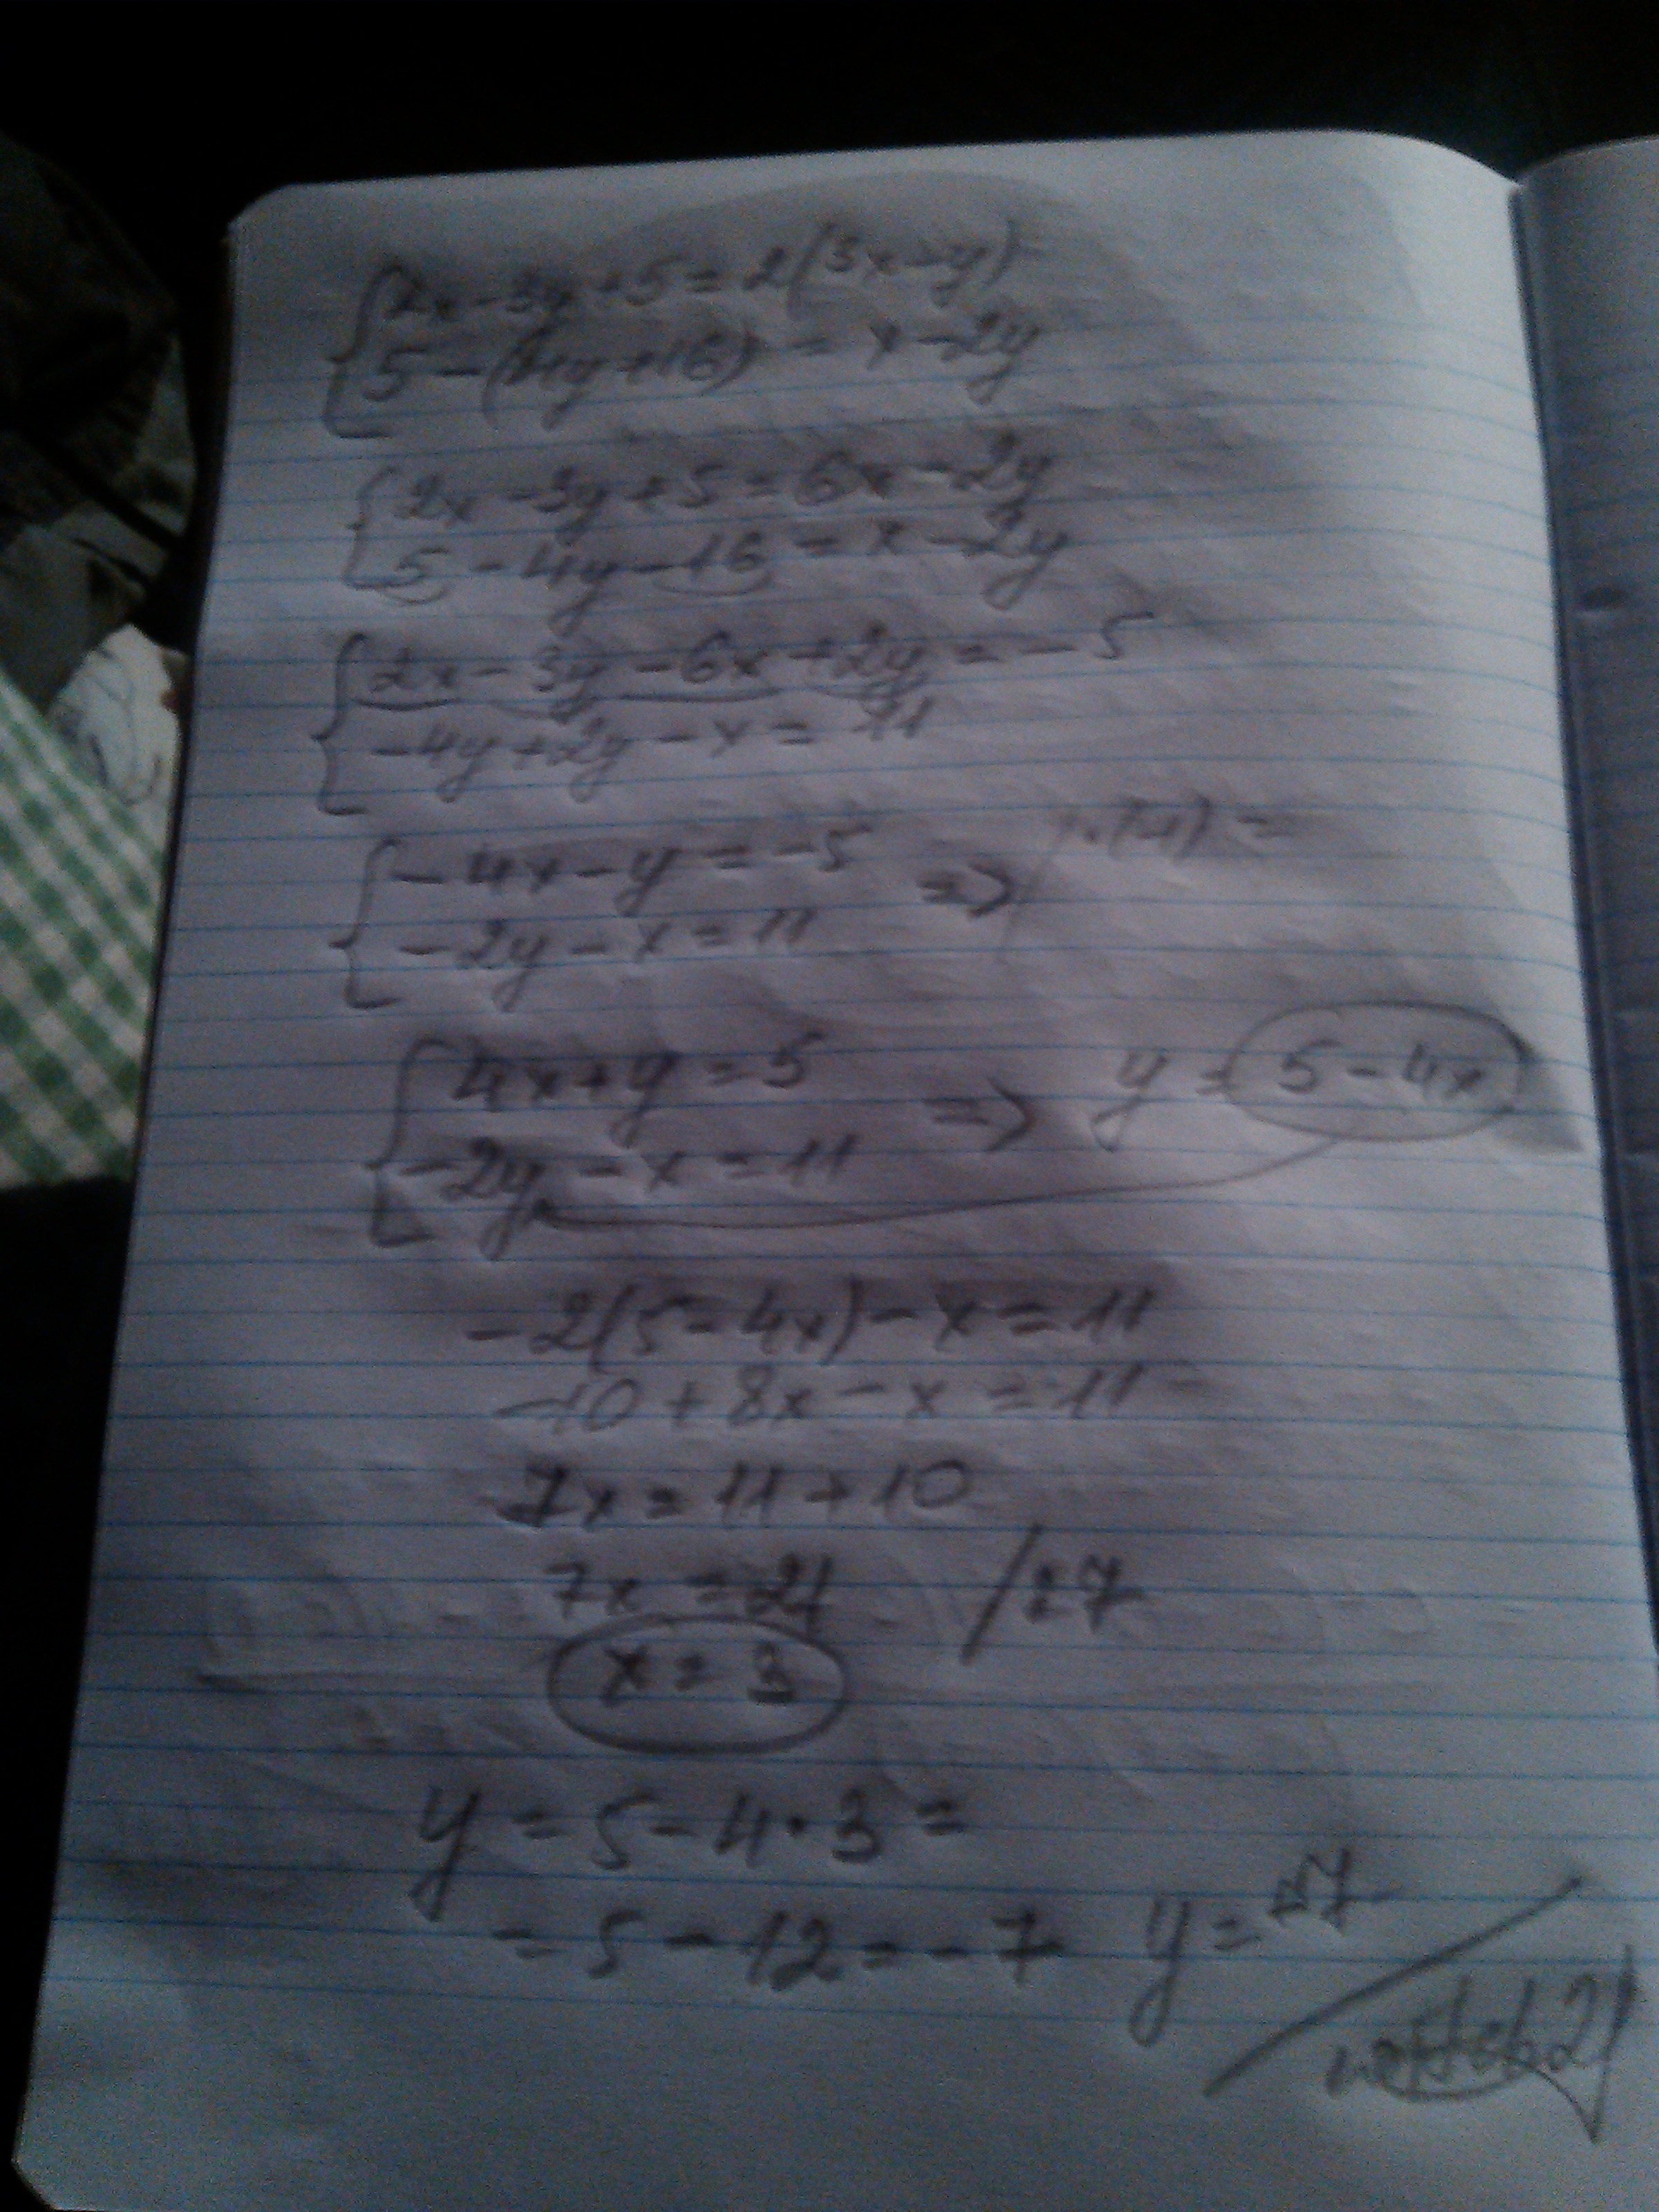 2x-3y+5=2(3x-y)
5-(4y+16) = x-2y
2x-3y+5=6x-2y
5-4y-16=x-2y
2x-3y-6x+2y=-5
-4y+2y-x=11
-4x-y=-5 => /·(-1) =
-2y-x=11
4x+y=5 => y=5-4x
-2y-x=11
-2(5-4x)-x=11
-10+8x-x=11
7x=11+10
7x=21 /:7
x=3
y=5-4·3=
=5-12=-7 y=-7